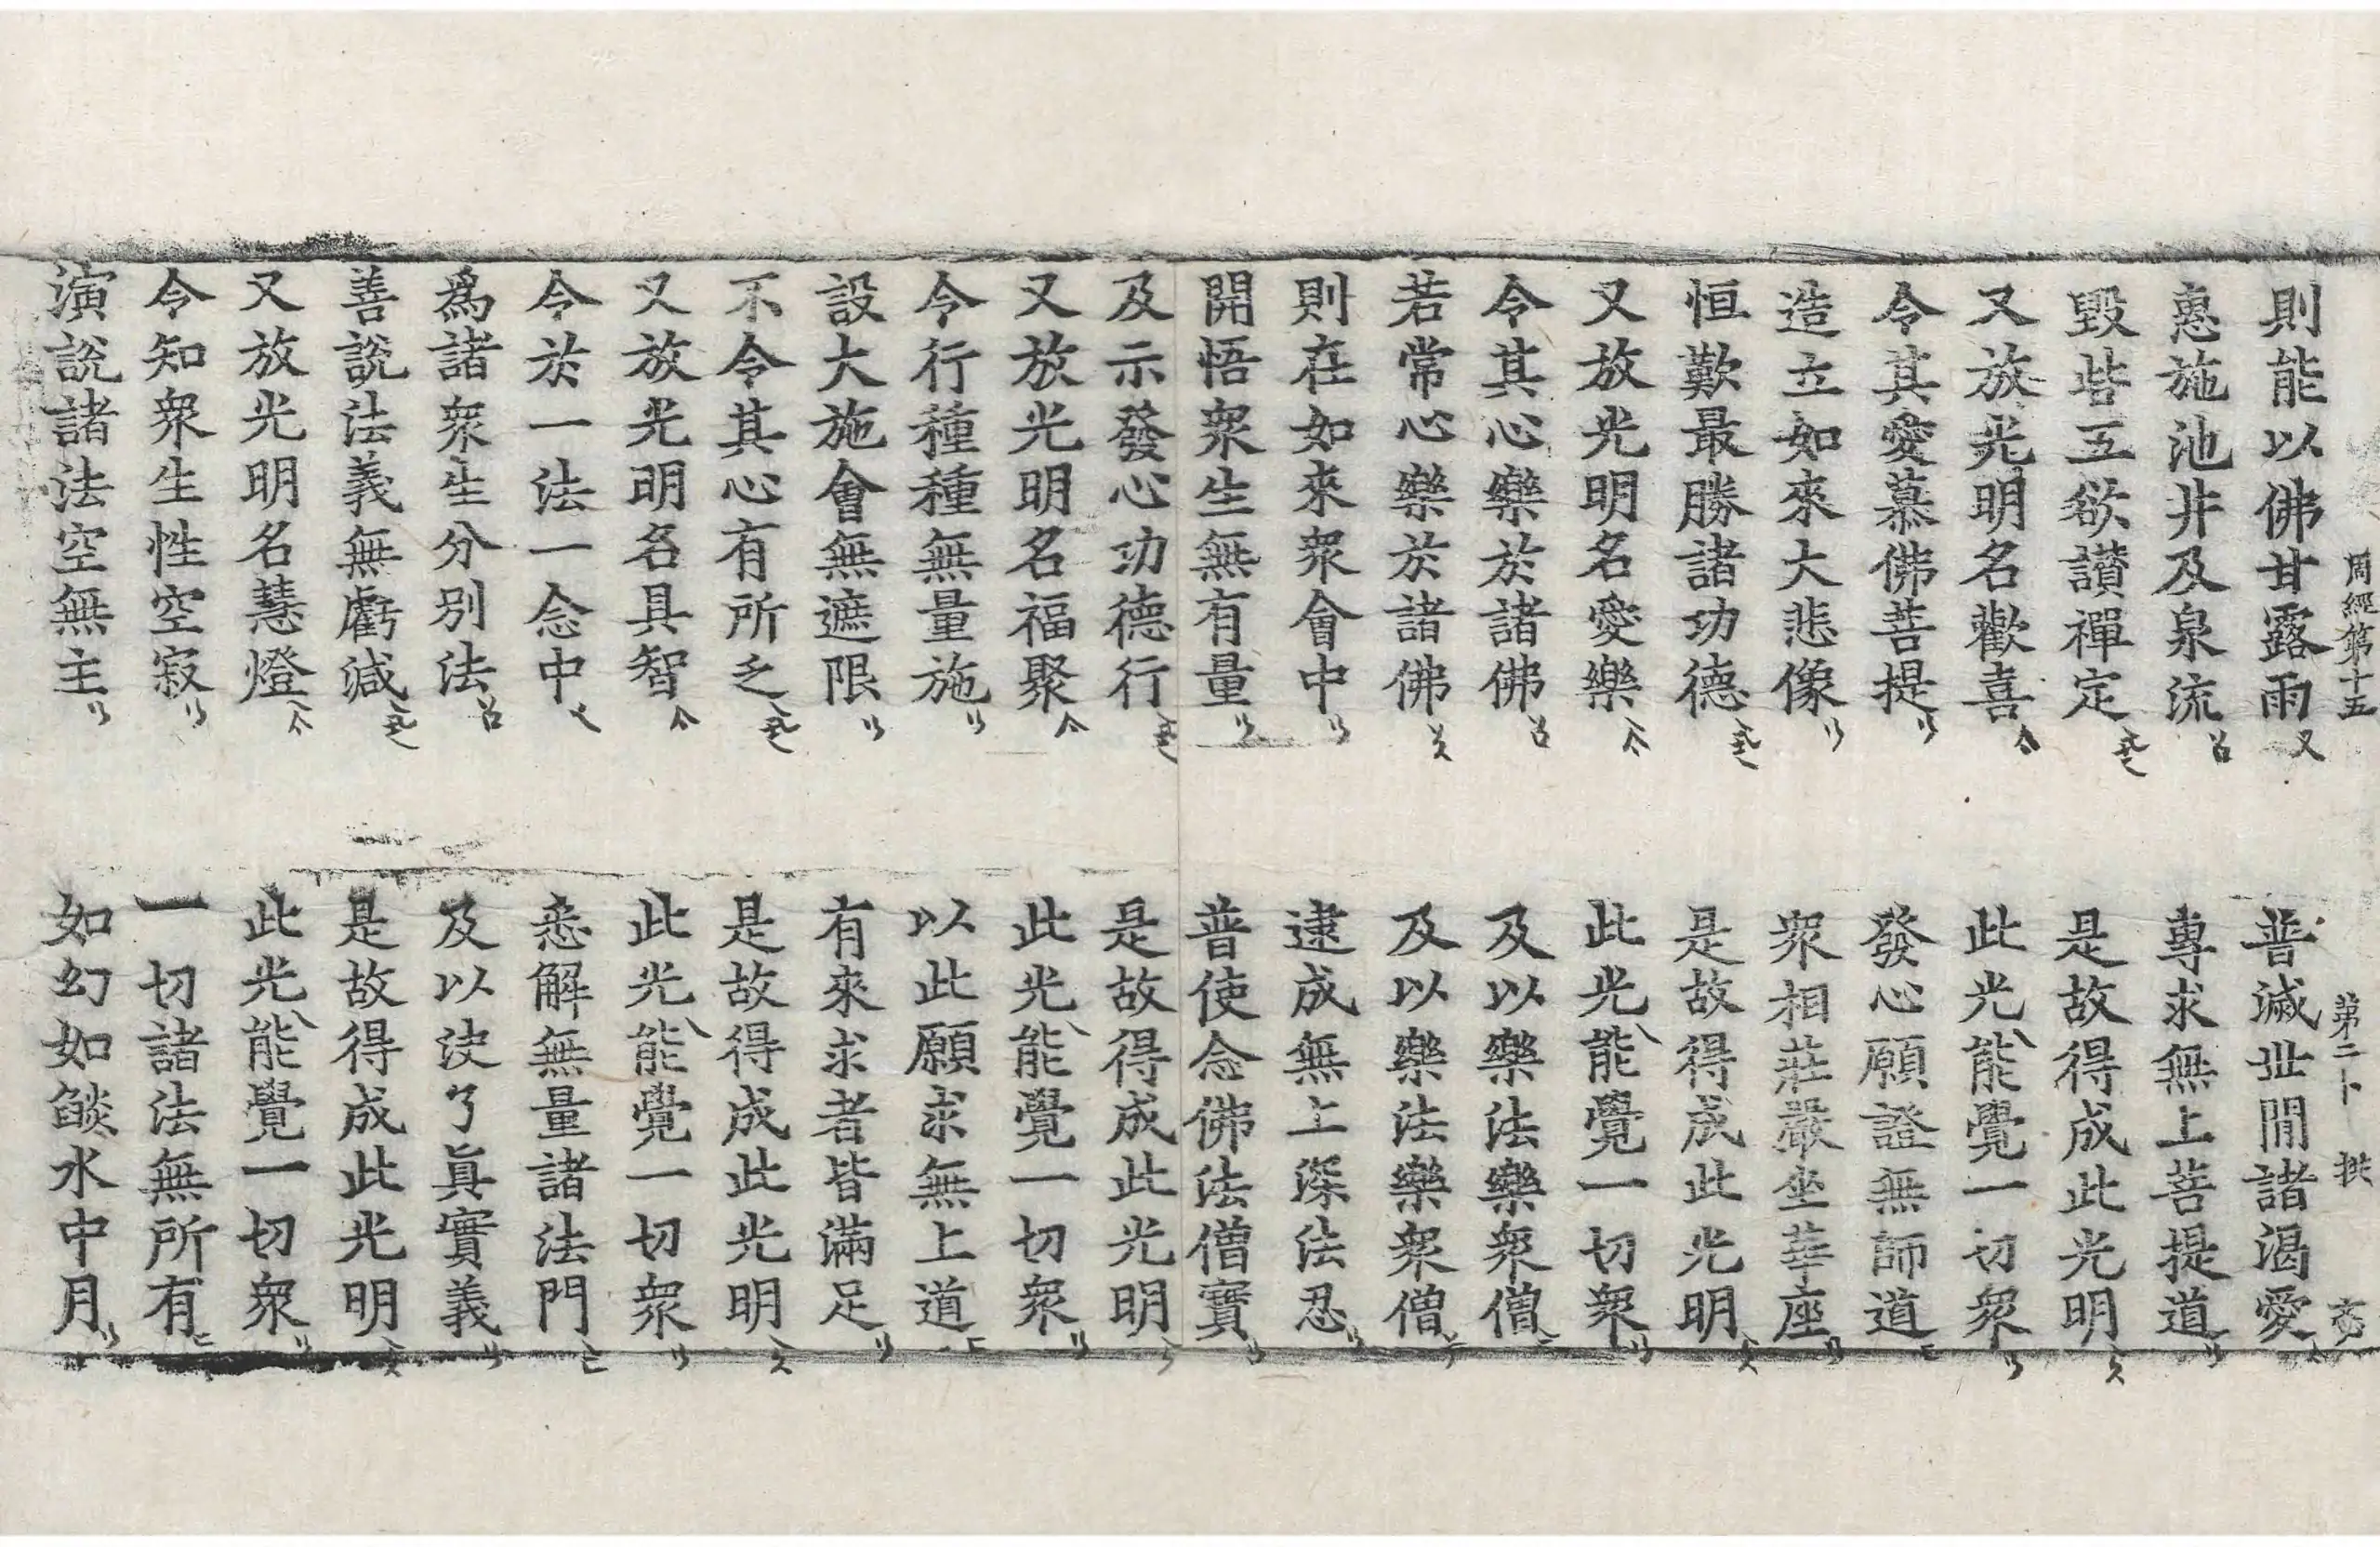 周經第十五 第二卜 拱
則能以佛甘露雨 普滅世間諸渴愛
惠施池井及泉流 專求無上菩提道
毀呰五欲讃禪定 是故得成此光明
又放光明名歡喜 此光能覺一切衆
令其愛慕佛菩提 發心願證無師道
造立如來大悲像 衆相莊嚴坐華座
恒歎最勝諸功德 是故得成此光明
又放光明名愛樂 此光能覺一切衆
令其心樂於諸佛 及以樂法樂衆僧
若常心樂於諸佛 及以樂法樂衆僧
則在如來衆會中 逮成無上深法忍
開悟衆生無有量 普使念佛法僧寶
及示發心功德行 是故得成此光明
又放光明名福聚 此光能覺一切衆
令行種種無量施 以此願求無上道
設大施會無遮限 有來求者皆滿足
不令其心有所乏 是故得成此光明
又放光明名具智 此光能覺一切衆
令於一法一念中 悉解無量諸法門
爲諸衆生分別法 及以決了眞實義
善說法義無虧減 是故得成此光明
又放光明名慧燈 此光能覺一切衆
令知衆生性空寂 一切諸法無所有
演說諸法空無主 如幻如燄水中月